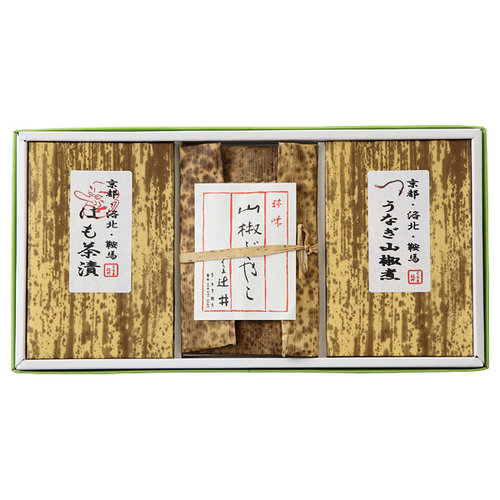 京都・洛北・鞍馬
はも茶漬
珍味
山椒じゃこ
くらま辻井
京都・洛北・鞍馬
うなぎ山椒煮